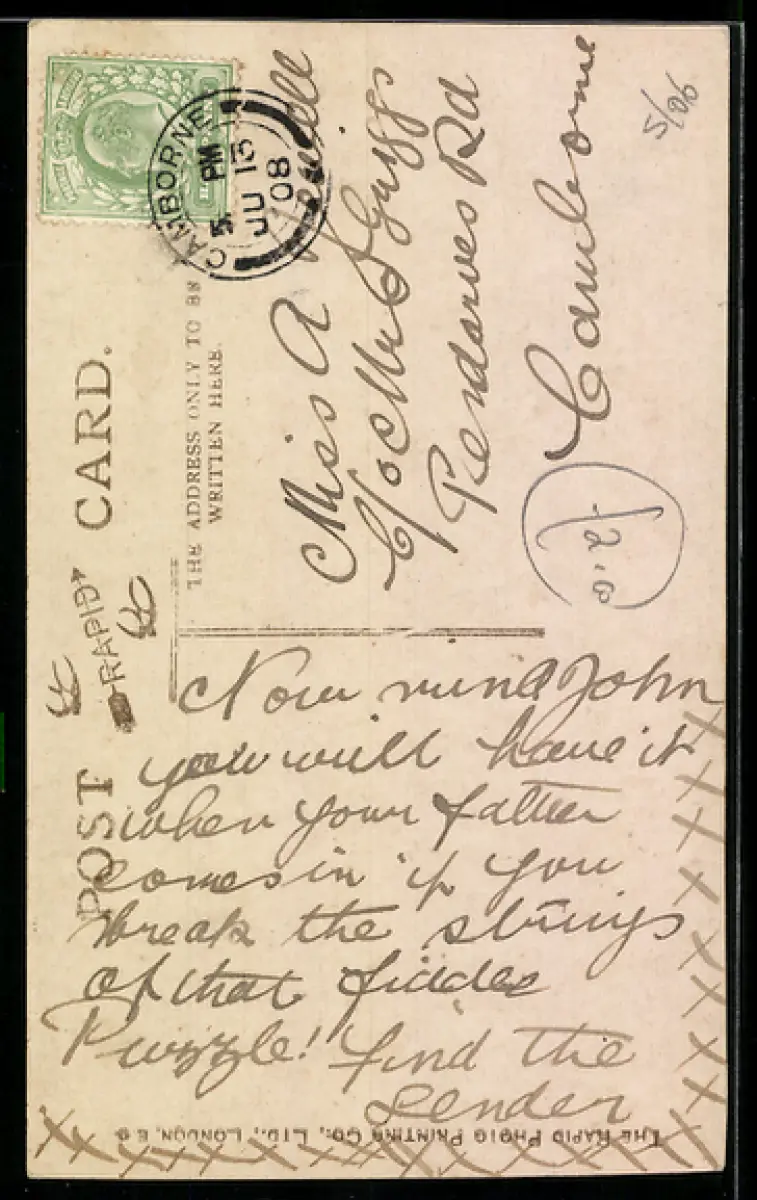 POST CARD.
RAPID
THE ADDRESS ONLY TO BE
WRITTEN HERE.
CAMBORNE
5 PM
JU 13
08
5/06
Miss A
C/o Mr S Griggs
Pendarves Rd
Camborne
Now mind John
you will have it
when your father
comes in if you
break the strings
of that fiddle
Puzzle! find the
sender
THE RAPID PHOTO PRINTING CO., LTD., LONDON, E.C.